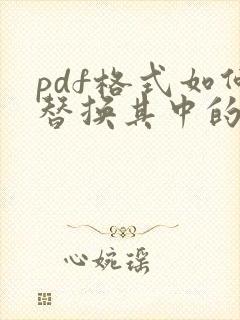 pdf格式如何
替换其中的
心婉瑶